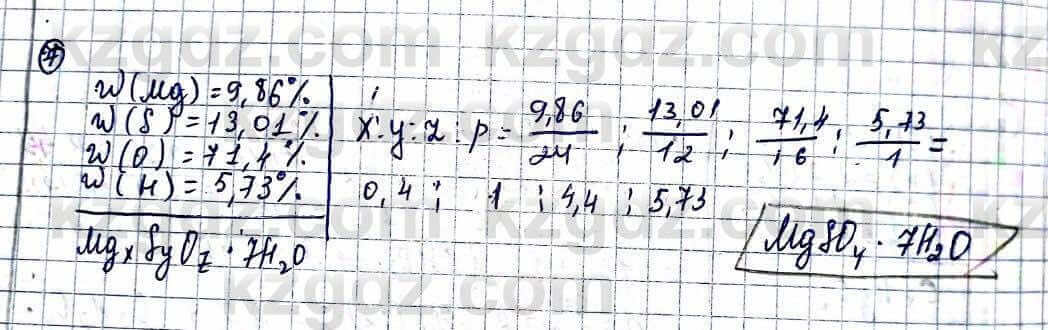 7
w(Mg) = 9,86%
w(S) = 13,01%
w(O) = 71,4%
w(H) = 5,73%
MgxSyOz · 7H2O
x : y : z : p = 9,86/24 ; 13,01/12 ; 71,4/16 ; 5,73/1 =
0,4 ; 1 ; 4,4 ; 5,73
MgSO4 · 7H2O
kzgdz.com
kzgdz.com
kzgdz.com
kzgdz.com